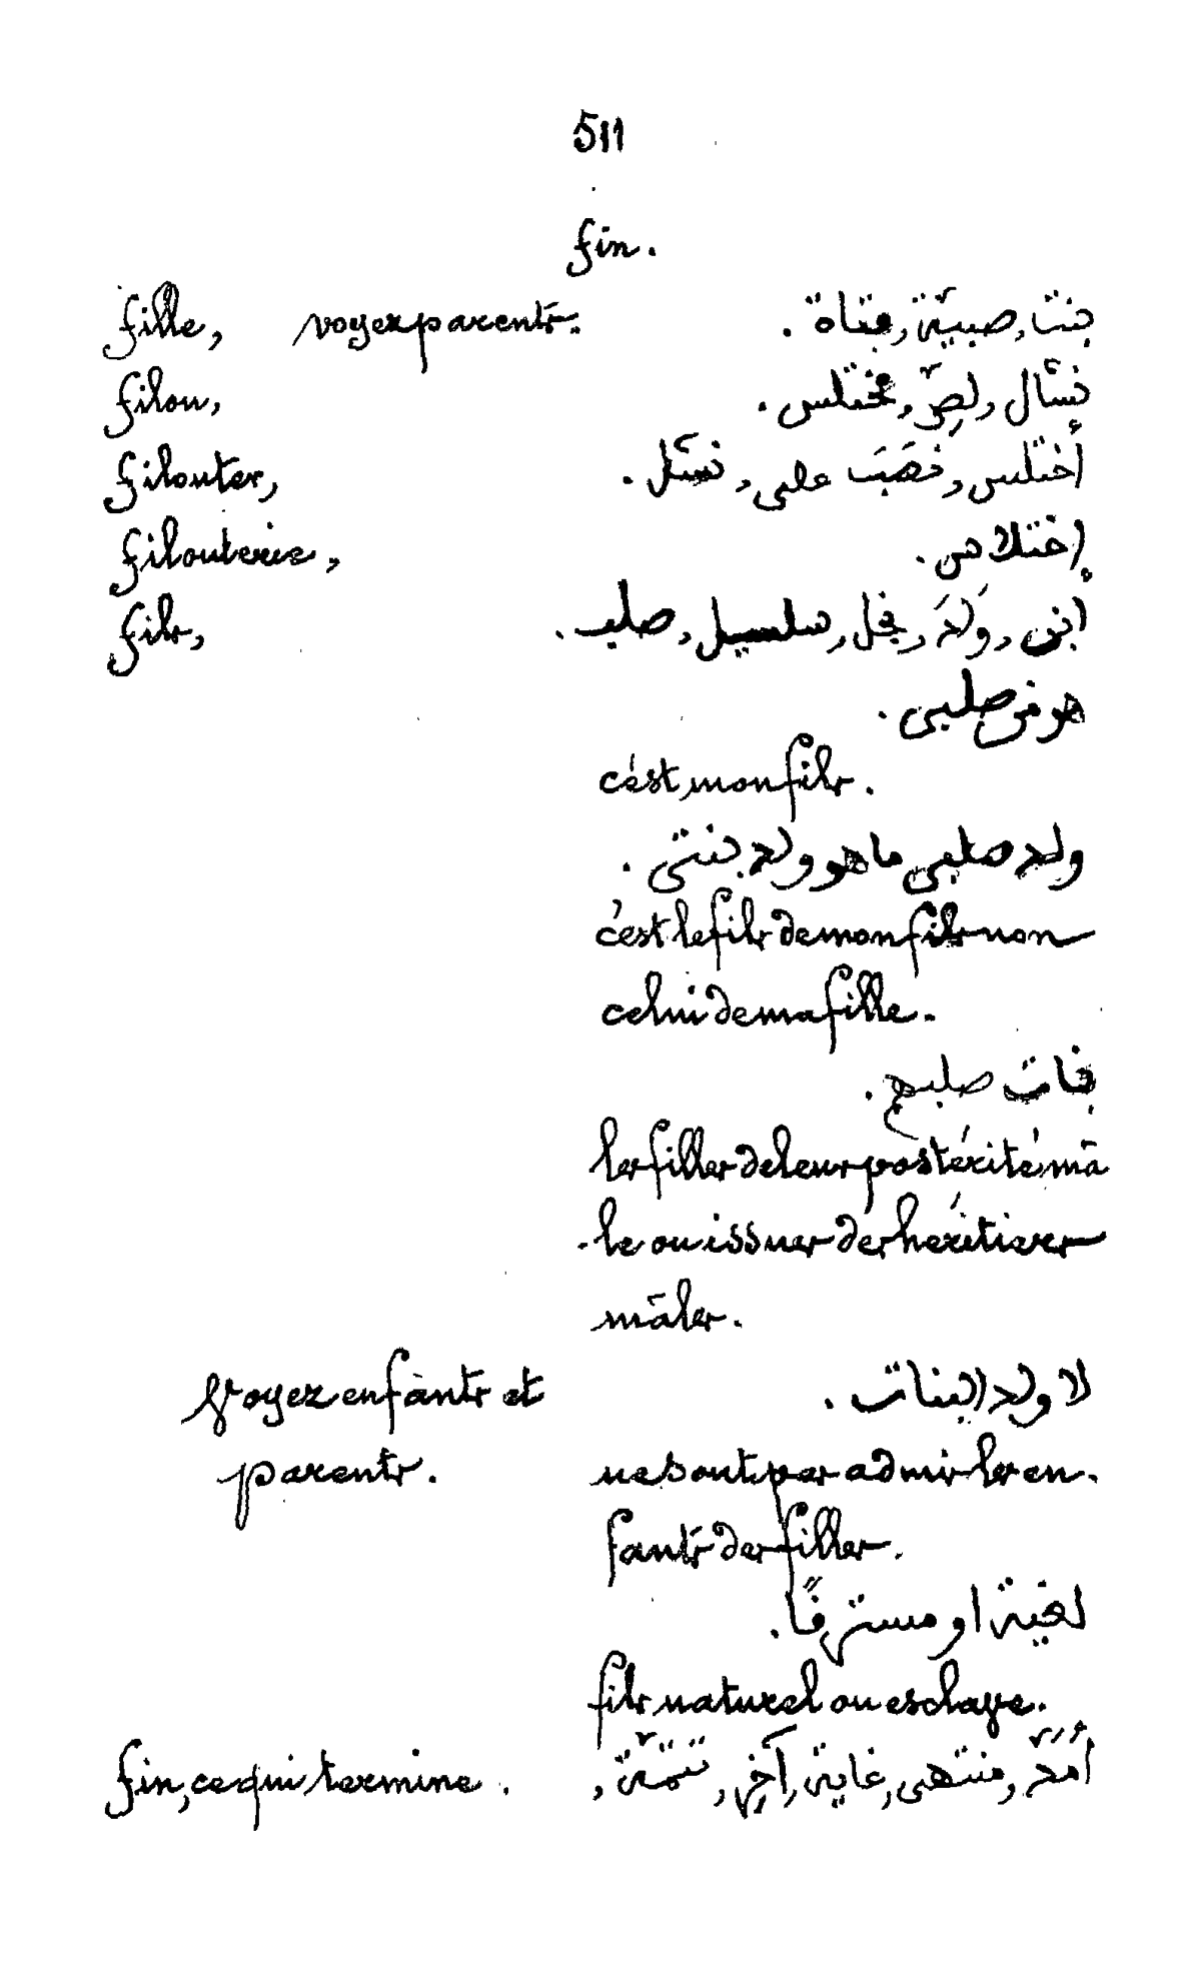 511
fin.
fille, voyez parents. بنت, صبيّة, فتاة.
filou, نشّال, لصّ, مختلس.
filouter, أختلس, نَصَبَ على, نشّل.
filouterie, إختلاس.
fils, أبن, وَلَد, نجل, سلسيل, صلب.
هو من صلبى.
c'est mon fils.
ولد صلبى ما هو ولد بنتى.
c'est le fils de mon fils non
celui de ma fille.
بنات صلبهم.
les filles de leur postérité mâ
-le ou issues des héritiers
mâles.
Voyez enfants et لا ولد البنات.
parents. ne sont pas admis les en-
fants des filles.
لغية او مسترقًا.
fils naturel ou esclave.
fin, ce qui termine. أَمَدّ, منتهى, غاية, آخِر, تتمّة,